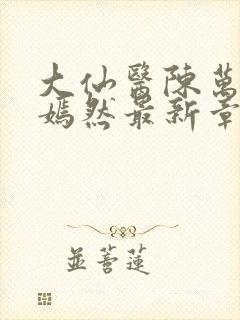 大仙醫陳萬
嫣然最新章
並蒂蓮